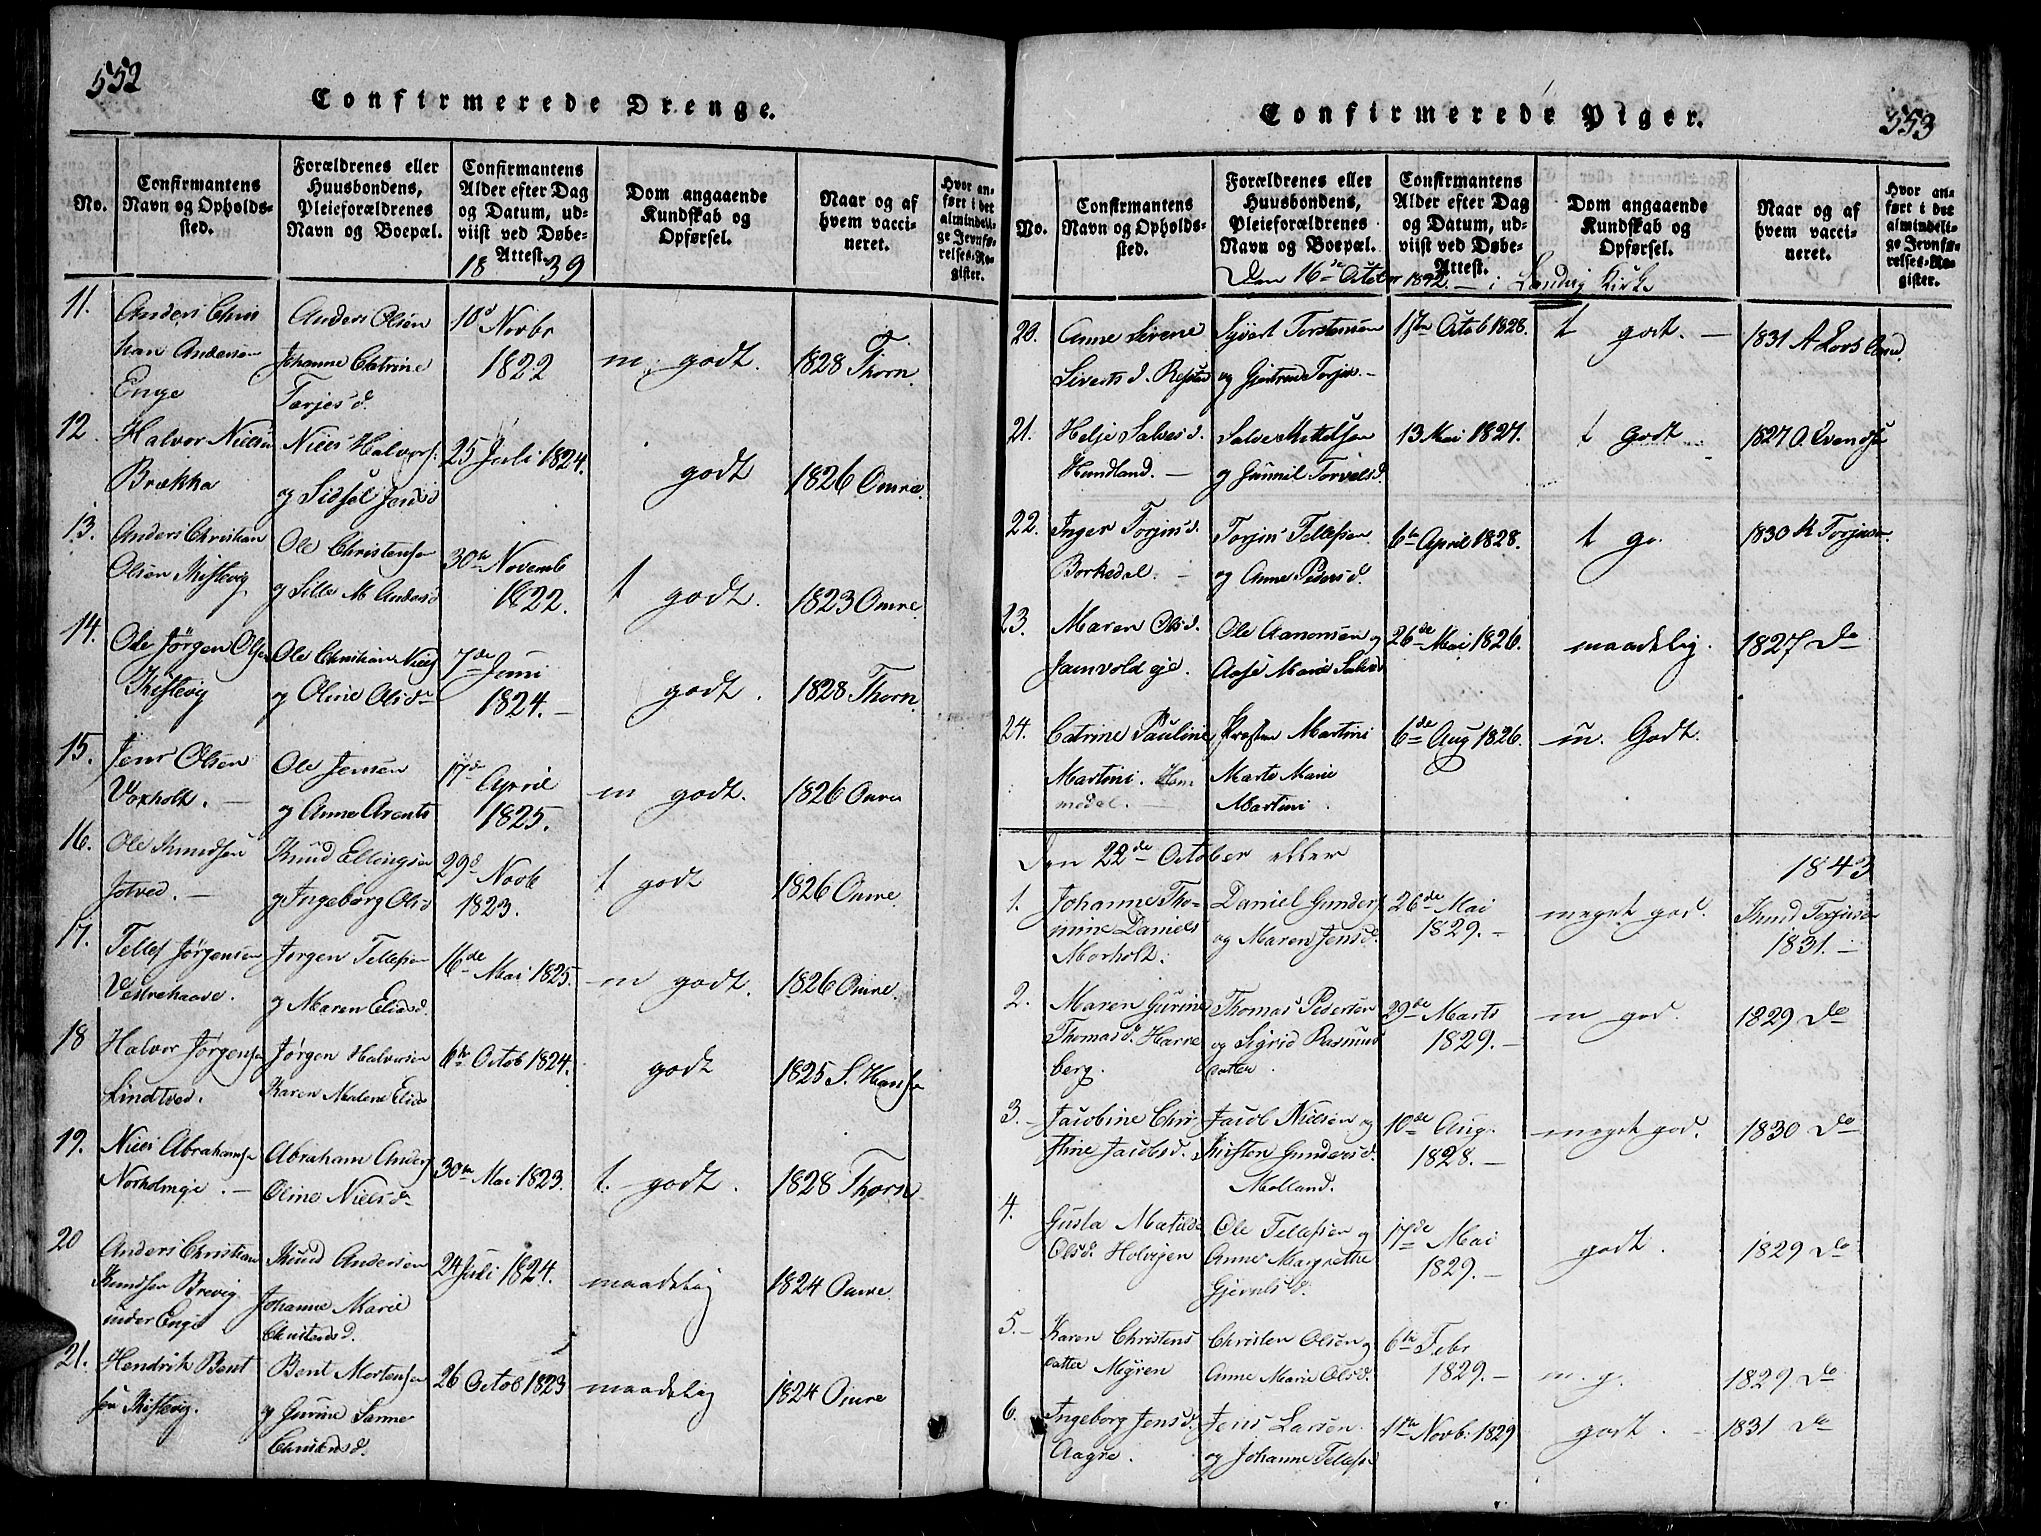 552
Confirmerede Drenge.
No.
Confirmantens
Navn og Opholds-
sted.
Forældrenes eller
Huusbondens,
Pleieforældrenes
Navn og Boepæl.
Confirmantens
Alder efter Dag
og Datum, ud-
viist ved Døbe-
Attest.
18 39
Dom angaaende
Kundskab og
Opførsel.
Naar og af
hvem vacci-
neret.
Hvor an-
ført i det
almindeli-
ge Jevnfø-
relses-Re-
gister.
11.
Anders Chris
tian Andersen
Enge
Anders Olsen
Johanne Catrine
Tarjesd.
10d Novbr
1822
m. godt.
1828 Thorn
12.
Halvor Nielsen
Brækka
Niels Halvors.
og Sidsel Jensd
25 Juli 1824.
godt
1826 Omre.
13.
Anders Christian
Olsen Kistevig
Ole Christensen
og Sille M. Andersd
30te Novemb
1822.
t godt.
1823 Omre
14.
Ole Jørgen Olsen
Kistevig
Ole Christian Niels
og Oline Olsd
7de Juni
1824. –
godt.
1828 Thorn
15.
Jens Olsen
Voxholt. –
Ole Jensen
og Anne Arents
17d April
1825.
m godt.
1826 Omre
16.
Ole Knudsen
Jotved. –
Knud Ellingsen
og Ingeborg Olsd
29d Novb
1823.
t godt
1826 Omre.
17.
Tellef Jørgensen
Vestrehaave.
Jørgen Tellefsen
og Maren Eliasd.
16de Mai 1825.
m godt.
1826 Omre.
18
Halvor Jørgensen
Lindtved.
Jørgen Halvorsen
Karen Malene Elias
6te Octob 1824.
godt
1825 S. Hansen
19.
Niels Abrahamsen
Norholmeje. –
Abraham Anders
Oline Nielsd
30te Mai 1823.
t. godt.
1828 Thorn
20
Anders Christian
Knudsen Brevig
under Enge
Knud Andersen
Johanne Marie
Christensd.
24 Juli 1824.
maadelig
1824 Omre.
21.
Hendrik Bent
sen Kistevig.
Bent Mortensen
og Gurine Sanne
Christensd.
26 Octob 1823
maadelig
1824 Omre
553
Confirmerede Piger.
No.
Confirmantens
Navn og Opholds-
sted.
Forældrenes eller
Huusbondens,
Pleieforældrenes
Navn og Boepæl.
Confirmantens
Alder efter Dag
og Datum, ud-
viist ved Døbe-
Attest.
Dom angaaende
Kundskab og
Opførsel.
Naar og af
hvem vacci-
neret.
Hvor an-
ført i det
almindeli-
ge Jevnfø-
relses-Re-
gister.
Den 16de October 1842. – i Landvig Kirke
20.
Anne Sirene
Siverts d.
Syvert Torstensen
og Gjertrud Torjus. –
Octob 1828.
t godt. –
1831
21.
Helje Salvesd.
Hundland. –
Salve Mittelsen
og Gunnil Torvelsd.
13 Mai 1827.
t godt
1827 O. Evensen
22.
Inger Torjusd.
Borkedal. –
Torjus Tellefsen
og Anne Pedersd.
6te April 1828.
t go.
1830 K Torjusen
23.
Maren Olsd.
Jamvold eje.
Ole Aanonsen og
Aase Marie Salvesd
26de Mai 1826.
maadelig.
1827 Do
24.
Catrine Pauline
Martini. Hom
medal. –
Martini
Marte Marie
Martini.
6de Aug 1826.
m. Godt.
Den 22de October eller
1843
1.
Johanne Tho-
mine Daniels
Morholt.
Daniel Gunders
og Maren Jensd.
26de Mai
1829. –
meget god.
Knud Torjusen
1831. –
2.
Maren Gurine
Thomasd. Harre
berg.
Thomas Pedersen
og Sigrid Rasmus
datter.
29de Marts
1829. –
m god.
1829 Do
3. –
Jacobine Chri
stine Jacobsd.
Jacob Nielsen og
Kirsten Gundersd.
Molland.
10de Aug.
1828. –
meget god.
1830 Do
4.
Gusta Matilde
Olsd. Holvigen
Ole Tellefsen og
Anne Margrethe
Gjerulsd.
17de Mai
1829. –
godt.
1829 Do
5. –
Karen Christens
datter Myren
Christen Olsen og
Anne Marie Olsd.
6te Febr
1829. –
m. g.
1829 Do
6.
Ingeborg Jensd.
Aagre.
Jens Larsen
og Johanne Tellefsd
1te Novb. 1829
godt. –
1831 Do